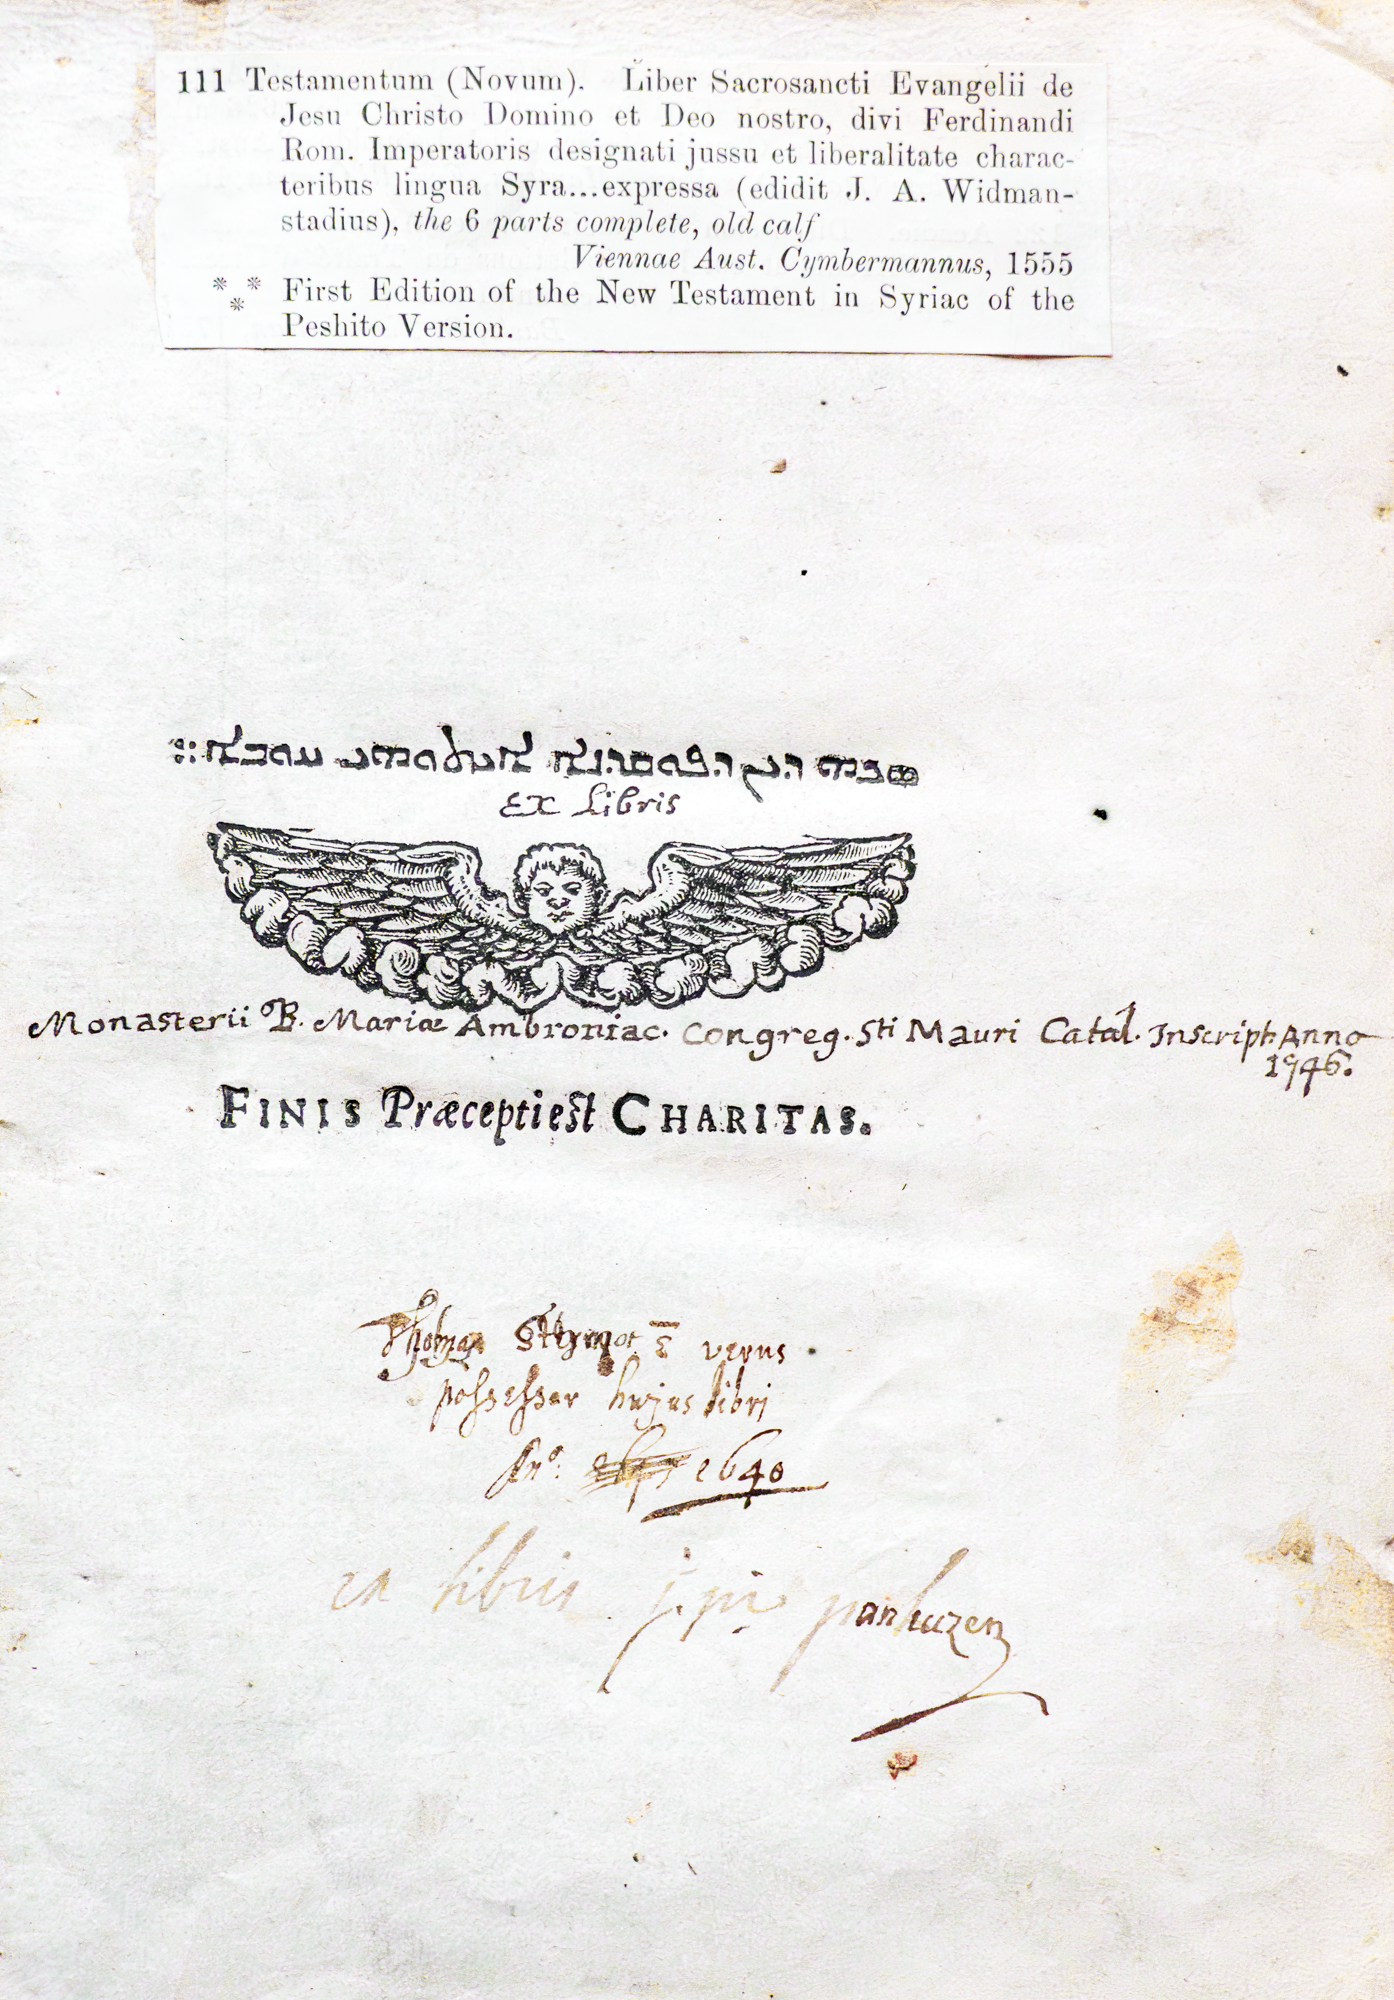 111 Testamentum (Novum). Liber Sacrosancti Evangelii de
Jesu Christo Domino et Deo nostro, divi Ferdinandi
Rom. Imperatoris designati jussu et liberalitate charac-
teribus lingua Syra...expressa (edidit J. A. Widman-
stadius), the 6 parts complete, old calf
Viennae Aust. Cymbermannus, 1555
*** First Edition of the New Testament in Syriac of the
Peshito Version.
ܣܟܗ ܕܝܢ ܕܦܘܩܕܢܐ ܐܝܬܘܗܝ ܚܘܒܐ ܀
Ex Libris
Monasterii B. Mariæ Ambroniac. Congreg. Sti Mauri Catal. Inscript: Anno
1746.
FINIS Præcepti est CHARITAS.
Thomas verus
possessor hujus libri
An°: 1640
ex libris